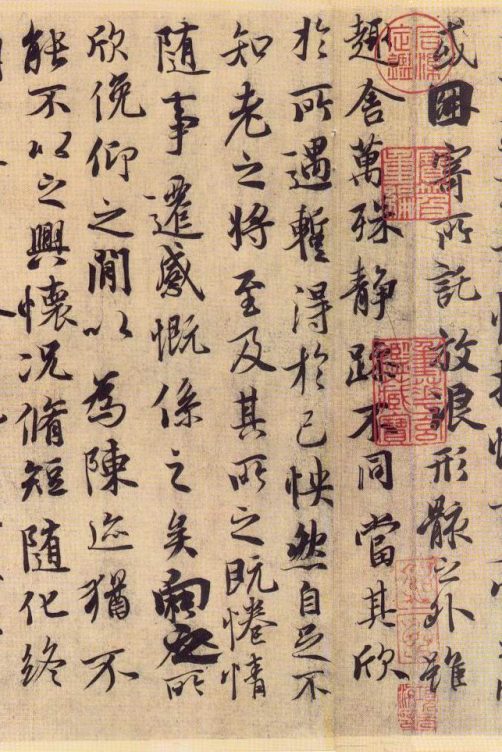 或因寄所託放浪形骸之外雖
趣舍萬殊静躁不同當其欣
於所遇暫得於己怏然自足不
知老之將至及其所之既惓情
随事遷感慨係之矣向之所
欣俛仰之閒以為陳迹猶不
能不以之興懷况脩短随化終